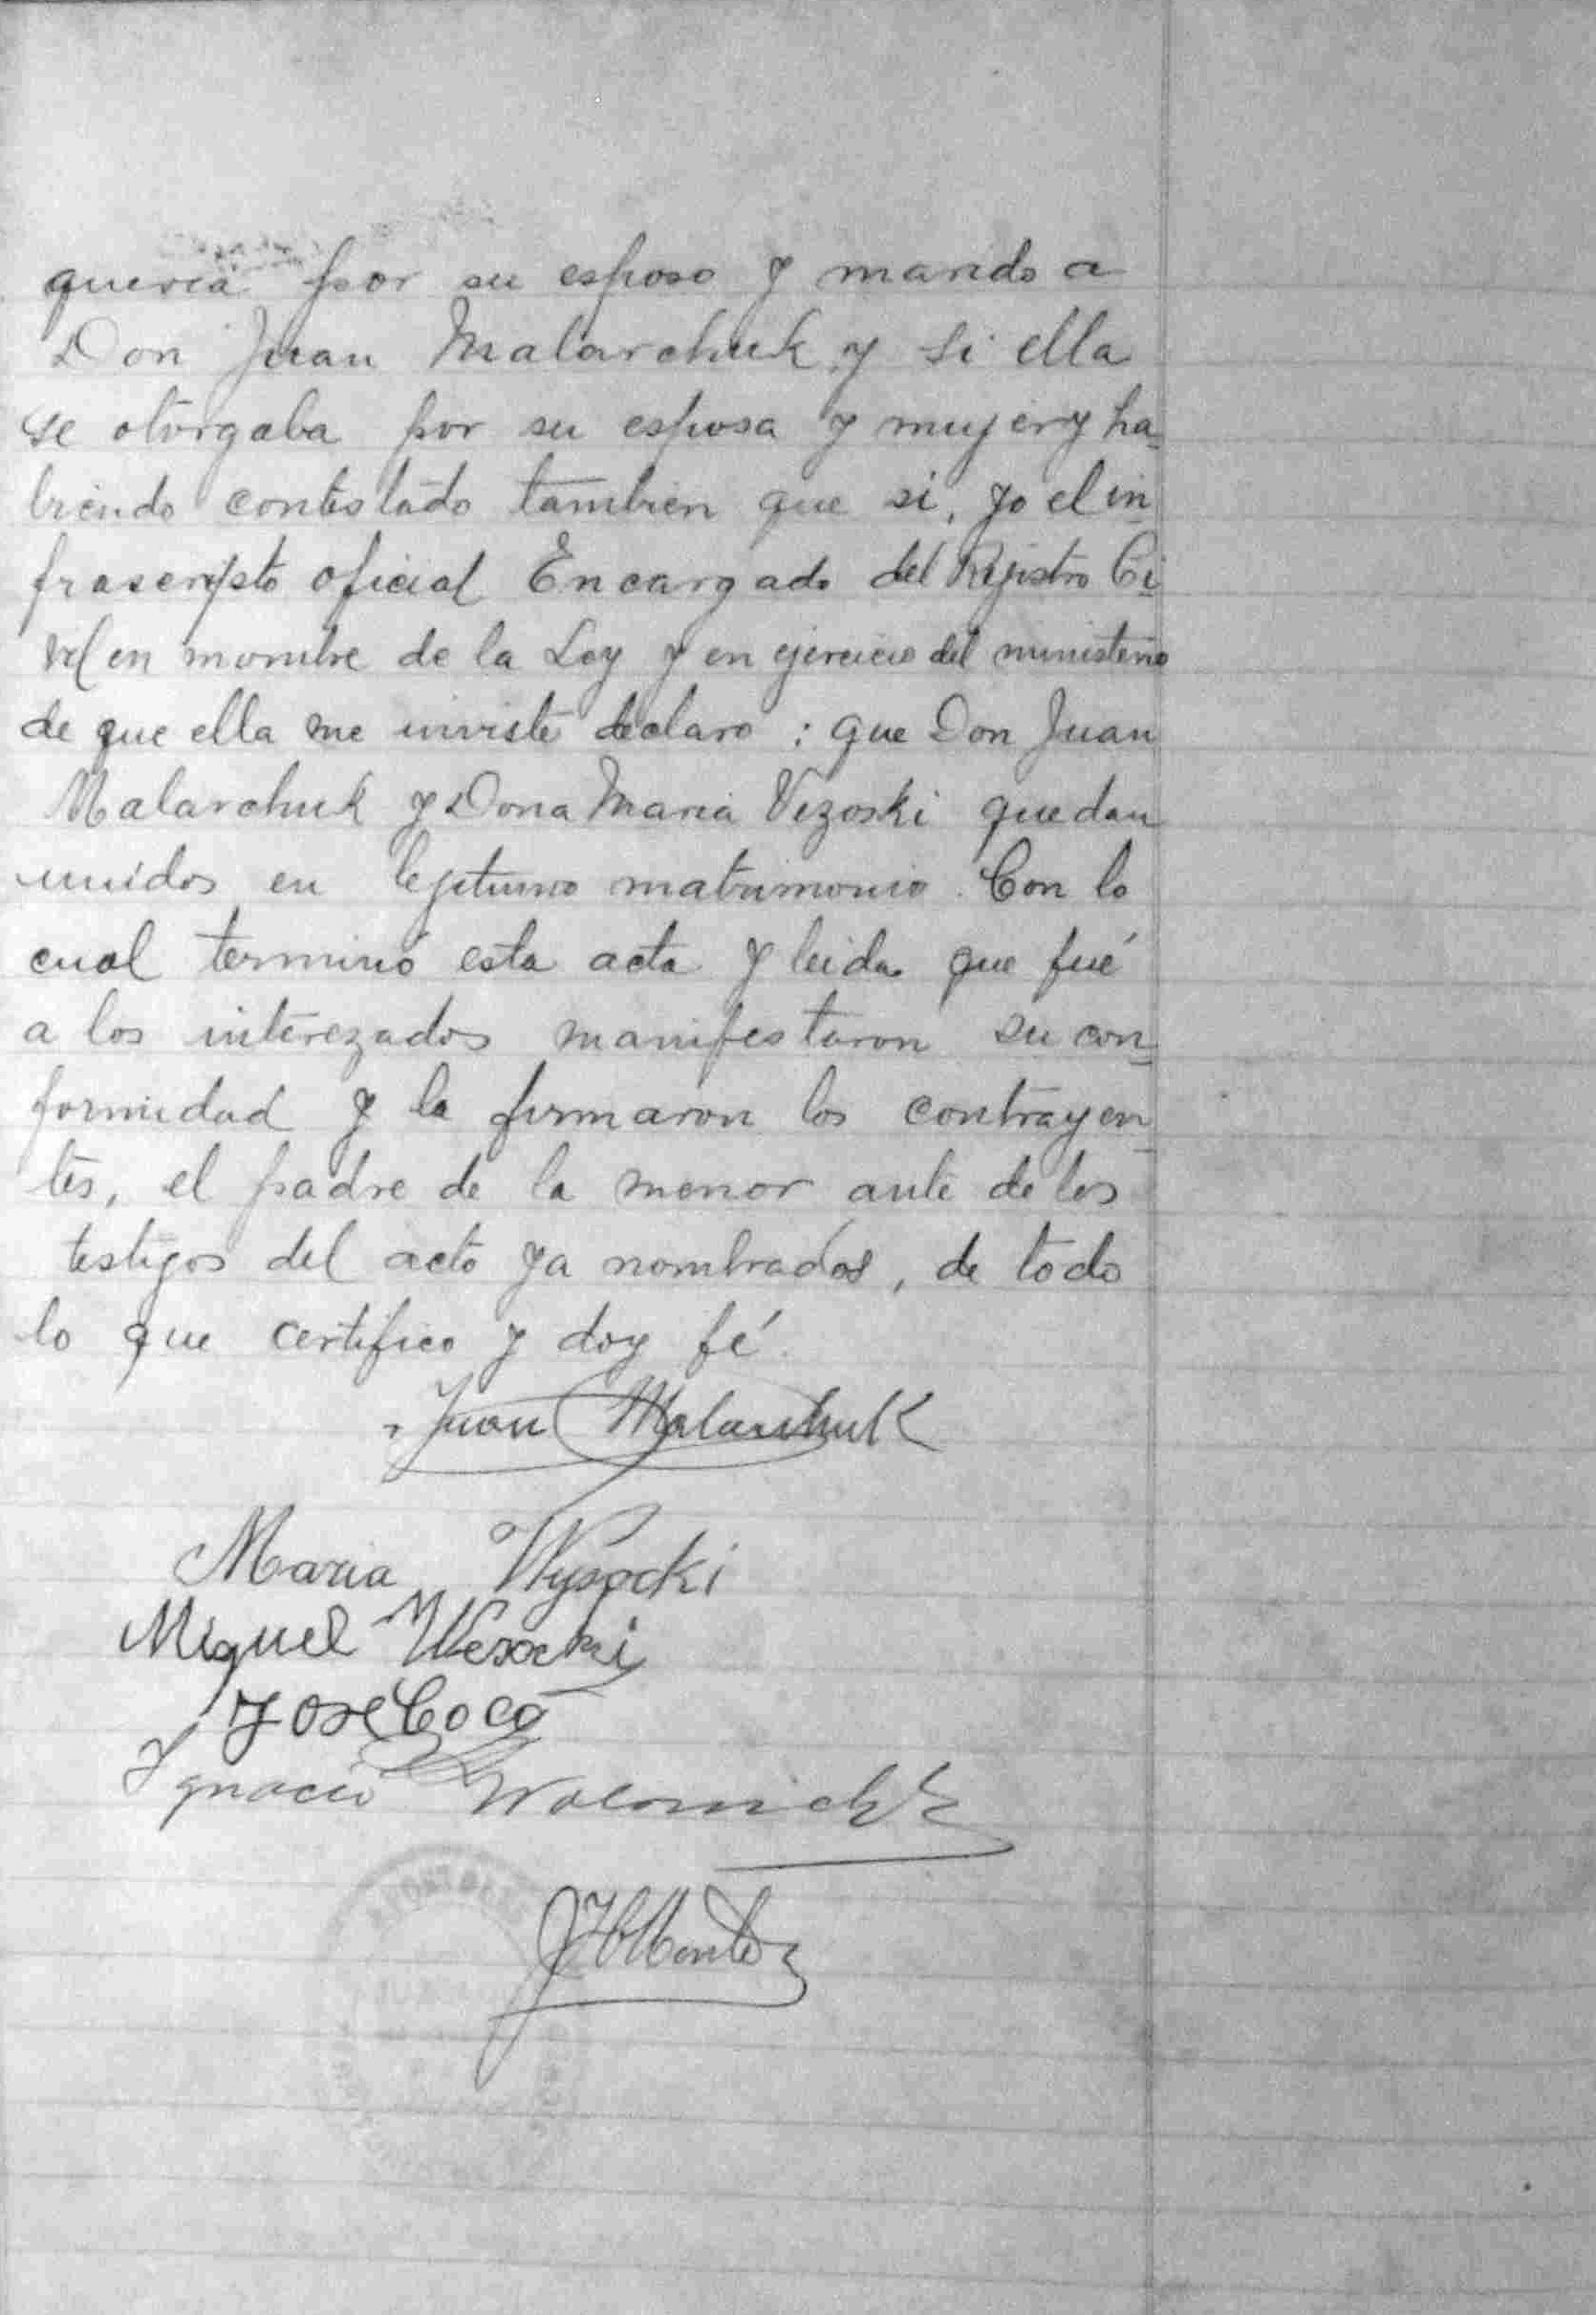 queria por su esposo y marido a
Don Juan Malarchuk y si ella
se otorgaba por su esposa y mujer y ha-
biendo contestado tambien que si, yo el in-
frascripto oficial Encargado del Rejistro Ci-
vil en nombre de la Ley y en ejercicio del ministerio
de que ella me inviste declaro : que Don Juan
Malarchuk y Dona Maria Vezoski quedan
unidos en lejitimo matrimonio. Con lo
cual terminó esta acta y leida que fué
a los interezados manifestaron su con-
formidad y la firmaron los contrayen-
tes, el padre de la menor ante de los
testigos del acto ya nombrados, de todo
lo que certifico y doy fé.
Juan Malarchuk
Maria Wysocki
Miguel Wesocki
José Coco
Ignacio